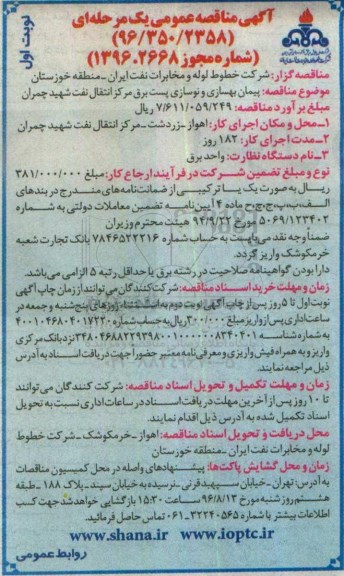 نوبت اول
آگهی مناقصه عمومی یک مرحله‌ای
(۹۶/۳۵۰/۲۳۵۸)
(شماره مجوز ۱۳۹۶.۲۶۶۸)
مناقصه گزار: شرکت خطوط لوله و مخابرات نفت ایران ـ منطقه خوزستان
موضوع مناقصه: پیمان بهسازی و نوسازی پست برق مرکز انتقال نفت شهید چمران
مبلغ برآورد مناقصه: ۷/۶۱۱/۰۵۹/۲۴۹ ریال
۱ـ محل و مکان اجرای کار: اهواز ـ زردشت ـ مرکز انتقال نفت شهید چمران
۲ـ مدت اجرای کار: ۱۸۲ روز
۳ـ نام دستگاه نظارت: واحد برق
نوع و مبلغ تضمین شرکت در فرآیند ارجاع کار: مبلغ ۳۸۱/۰۰۰/۰۰۰
ریال به صورت یک یا ترکیبی از ضمانت‌نامه‌های مندرج در بندهای
الف،ب،پ،ج،چ،ح ماده ۴ آیین‌نامه تضمین معاملات دولتی به شماره
۵۰۶۹/۱۲۳۴۰۲ مورخ ۹۴/۹/۲۲ هیئت محترم وزیران
ضمناً وجه نقد می‌بایست به حساب شماره ۷۸۴۶۵۲۲۲۱۶ بانک تجارت شعبه
خرمکوشک واریز گردد.
دارا بودن گواهینامه صلاحیت در رشته برق با حداقل رتبه ۵ الزامی می‌باشد.
زمان و مهلت خرید اسناد مناقصه: شرکت‌کنندگان می‌توانند از زمان چاپ آگهی
نوبت اول تا ۵ روز پس از چاپ آگهی نوبت دوم به استثناء روزهای پنج‌شنبه و جمعه در
ساعت اداری پس از واریز مبلغ ۳۰۰/۰۰۰ ریال به حساب شماره ۴۰۰۱۰۴۶۸۰۴۰۱۷۲۲۰
به شماره شناسه نزد بانک مرکزی
واریز و به همراه فیش واریزی و معرفی‌نامه معتبر حضوراً جهت دریافت اسناد به آدرس
ذیل مراجعه نمایند.
زمان و مهلت تکمیل و تحویل اسناد مناقصه: شرکت کنندگان می‌توانند
تا ۱۰ روز پس از آخرین مهلت دریافت اسناد در ساعات اداری نسبت به تحویل
اسناد تکمیل شده به آدرس ذیل اقدام نمایند.
محل دریافت و تحویل اسناد مناقصه: اهواز ـ خرمکوشک ـ شرکت خطوط
لوله و مخابرات نفت ایران ـ منطقه خوزستان
زمان و محل گشایش پاکت‌ها: پیشنهادهای واصله در محل کمیسیون مناقصات
به آدرس: تهران ـ خیابان سپهبد قرنی ـ نرسیده به خیابان سپند ـ پلاک ۱۸۸ ـ طبقه
هشتم روز شنبه مورخ ۹۶/۸/۱۳ ساعت ۱۵:۳۰ بازگشایی خواهد شد جهت کسب
اطلاعات بیشتر با شماره ۳۲۲۴۰۵۶۵-۰۶۱ تماس حاصل فرمائید.
www.shana.ir www.ioptc.ir
روابط عمومی